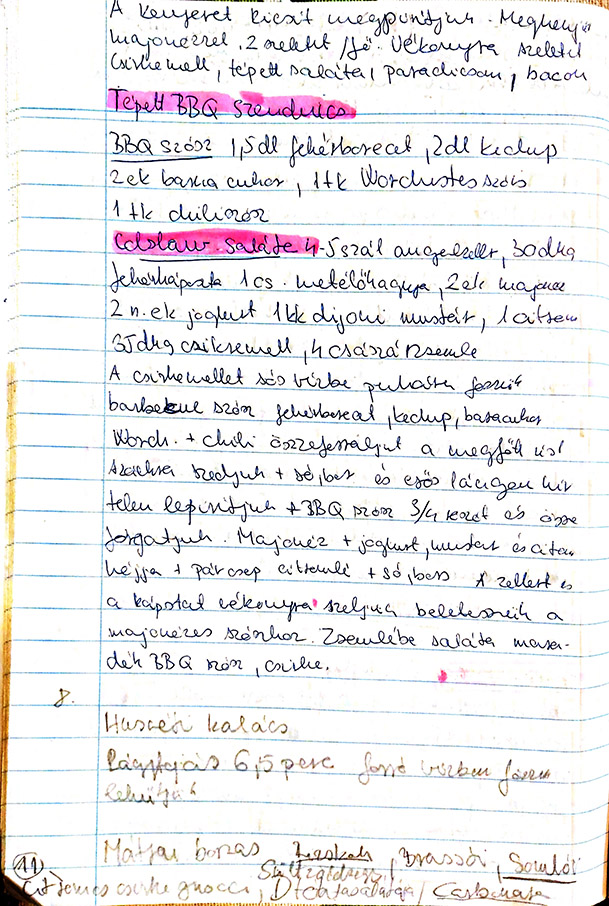 A kenyeret kicsit megpirítjuk. Megkenjü
majonézzel, 2 szeletet /fő. Vékonyra szeletel
csirkemell, tépett saláta, paradicsom, bacon
Tépett BBQ szendvics
BBQ szósz 1,5dl fehérborecet, 2dl kechup
2ek barna cukor, 1tk Worchestes szósz
1 tk chiliszósz
Colslaw saláta 4-5 szál angolzeller, 30dkg
fehérkáposzta 1cs. metélőhagyma, 2ek majonéz
2 n.ek joghurt 1kk dijoni mustár, 1 citrom
35dkg csirkemell, 4 császárzsemle
A csirkemellet sós vízbe puhára főzzük
barbekue szósz fehérborecet, kechup, barnacukor
Worch. + chili összeforraljuk a megfőtt húst
szedjük + só, bors és erős lángon hir
telen lepirítjuk + BBQ szósz 3/4 részét és össze
forgatjuk. Majonéz + joghurt, mustár és citrom
héjja + pár csep citromlé + só, bors A zellert és
a káposztát vékonyra szeljük belekeverjük a
majonézes szószhoz. Zsemlébe saláta mara-
dék BBQ szósz, csirke.
8.
Húsvéti kalács
Lágytojás 6,5 perc forró vízben főzzük
lehűtjük
Mátrai borzas Brassói, Somlói
11
Citromos csirke gnocci, Carbonara